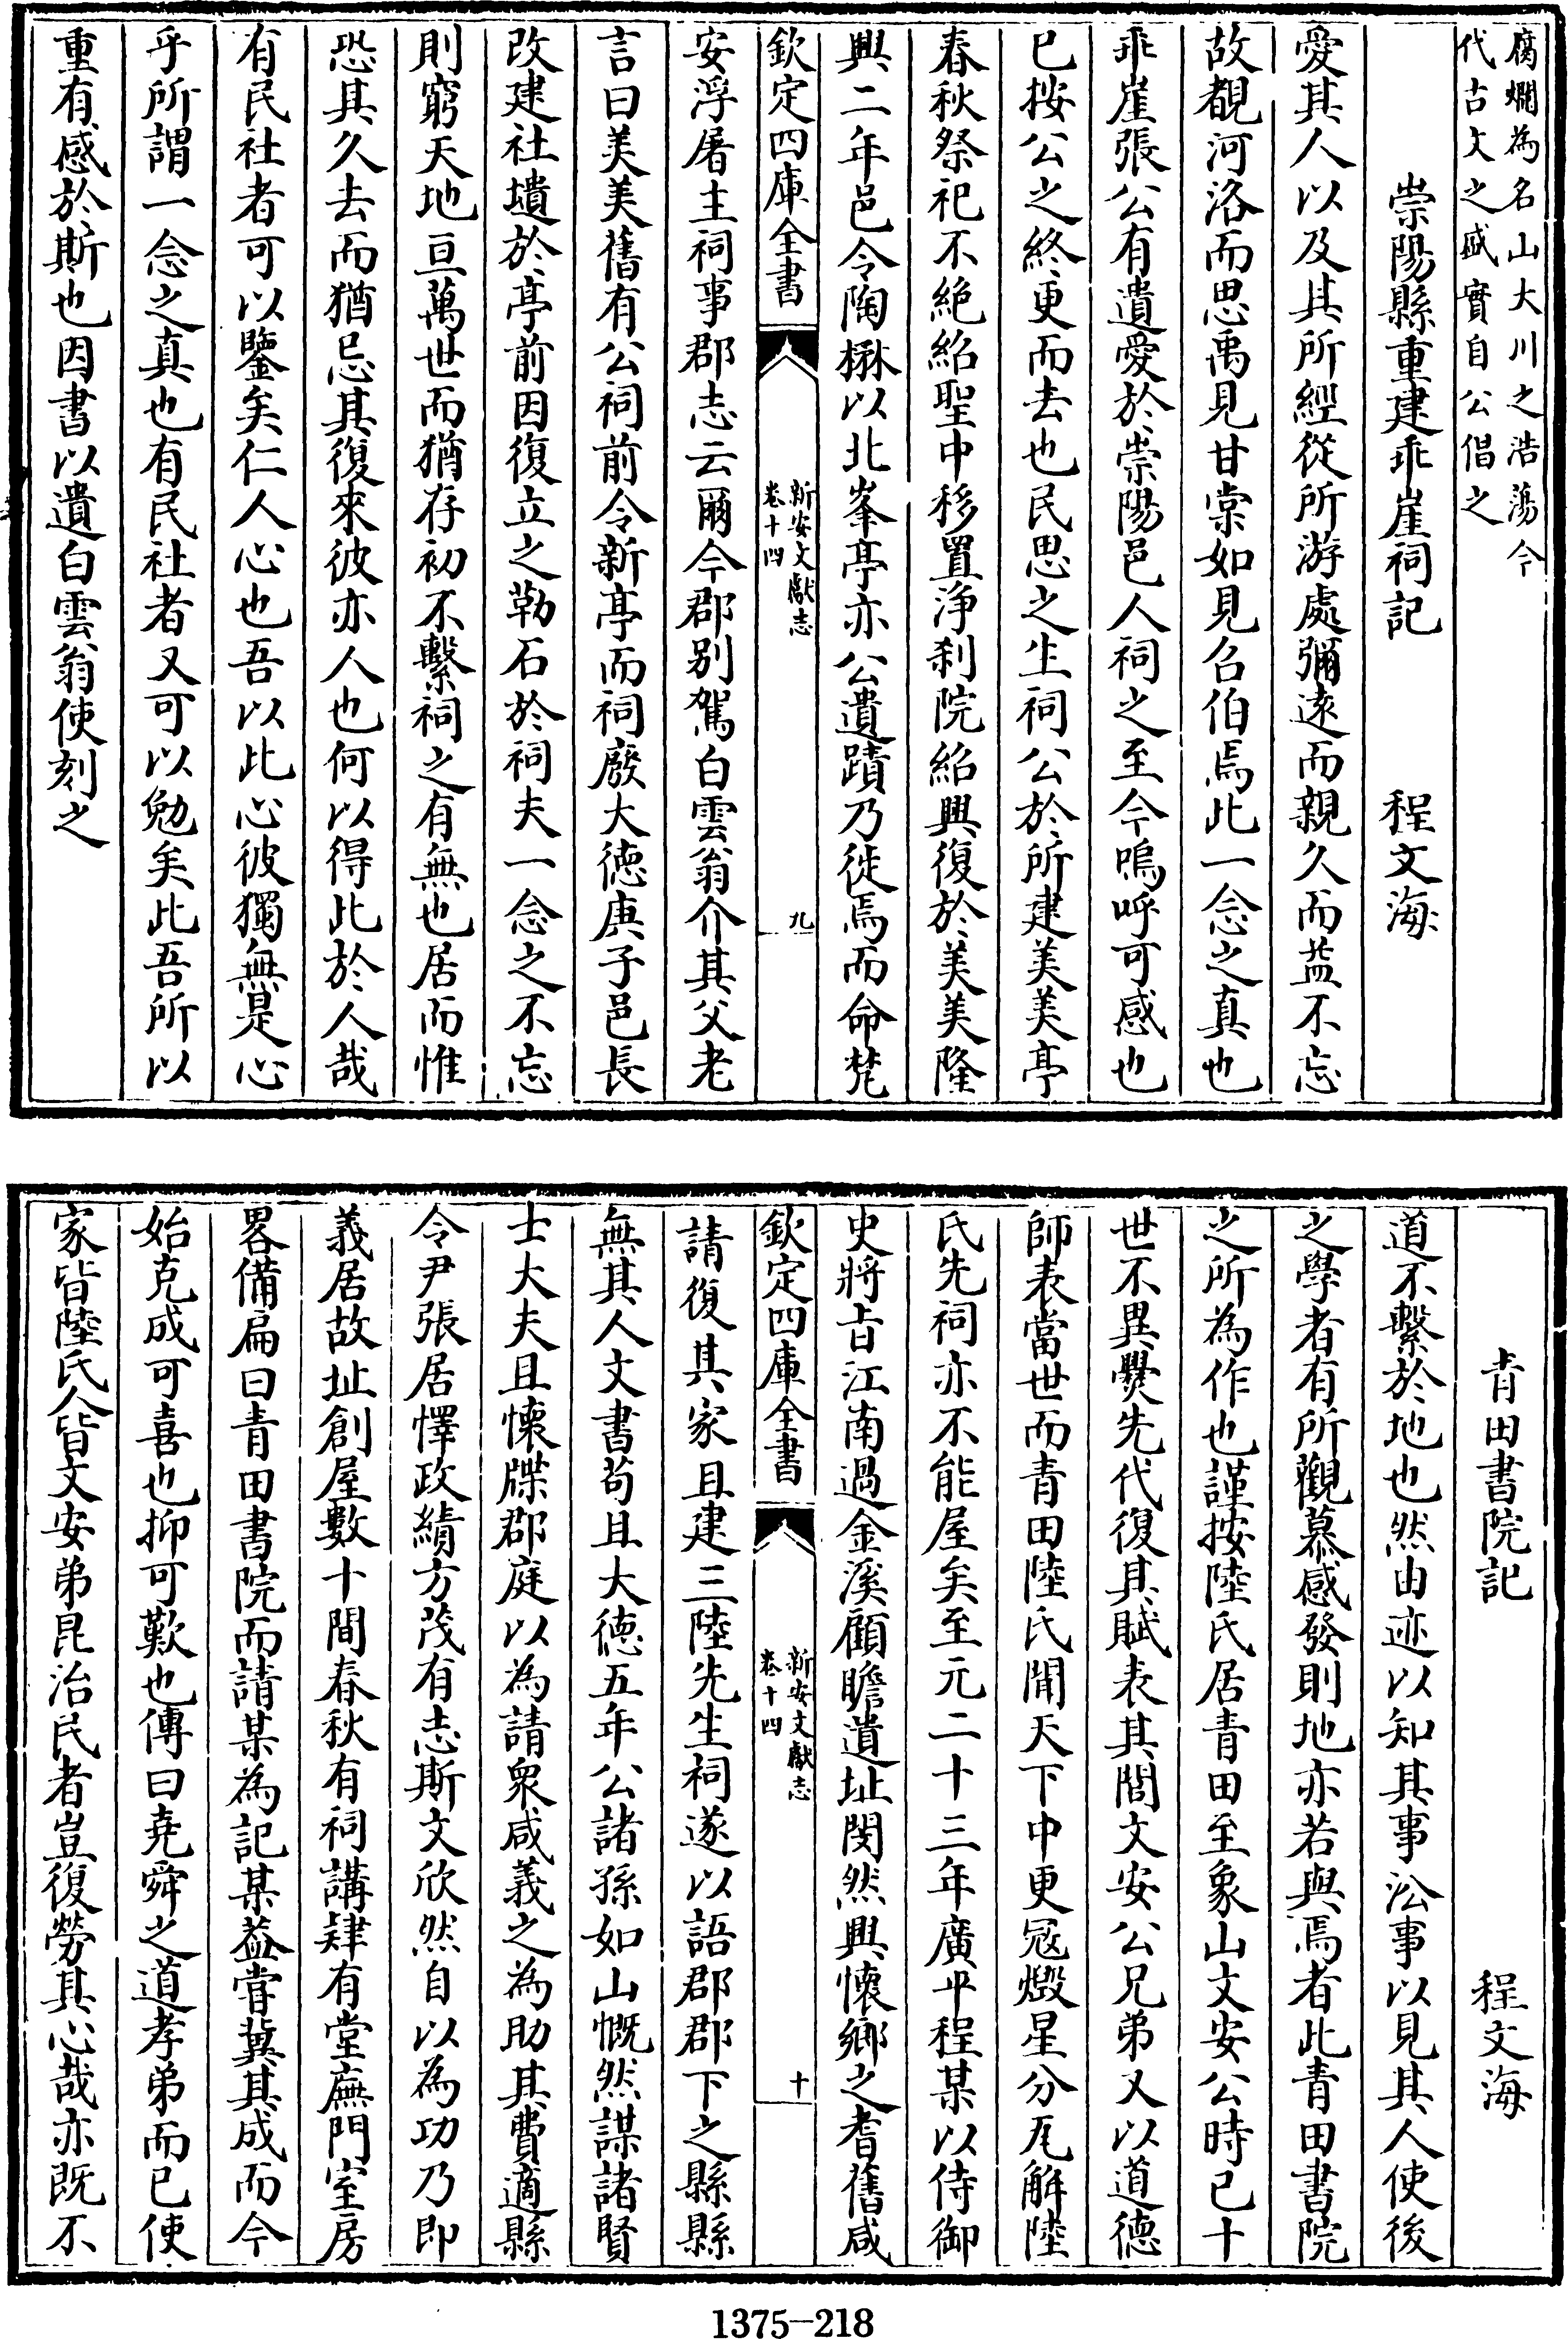 腐爛為名山大川之浩蕩今
代古文之盛實自公倡之
崇陽縣重建乖崖祠記　程文海
愛其人以及其所經從所游處彌遠而親久而益不忘
故覩河洛而思禹見甘棠如見召伯焉此一念之真也
乖崖張公有遺愛於崇陽邑人祠之至今嗚呼可感也
已按公之終更而去也民思之生祠公於所建美美亭
春秋祭祀不絶紹聖中移置淨剎院紹興復於美美隆
興二年邑令陶楙以北峯亭亦公遺蹟乃徙焉而命梵
欽定四庫全書
新安文獻志
卷十四
九
安浮屠主祠事郡志云爾今郡别駕白雲翁介其父老
言曰美美舊有公祠前令新亭而祠廢大德庚子邑長
改建社壝於亭前因復立之勒石於祠夫一念之不忘
則窮天地亘萬世而猶存初不繫祠之有無也居而惟
恐其久去而猶忌其復來彼亦人也何以得此於人哉
有民社者可以鑒矣仁人心也吾以此心彼獨無是心
乎所謂一念之真也有民社者又可以勉矣此吾所以
重有感於斯也因書以遺白雲翁使刻之
青田書院記　程文海
道不繫於地也然由迹以知其事㳂事以見其人使後
之學者有所觀慕感發則地亦若與焉者此青田書院
之所為作也謹按陸氏居青田至象山文安公時已十
世不異爨先代復其賦表其閭文安公兄弟又以道德
師表當世而青田陸氏聞天下中更冦燬星分瓦解陸
氏先祠亦不能屋矣至元二十三年廣平程某以侍御
史將㫖江南過金溪顧瞻遺址閔然興懷鄉之耆舊咸
欽定四庫全書
新安文獻志
卷十四
十
請復其家且建三陸先生祠遂以語郡郡下之縣縣
無其人文書苟且大德五年公諸孫如山慨然謀諸賢
士大夫且懐牒郡庭以為請衆咸義之為助其費適縣
令尹張居懌政績方茂有志斯文欣然自以為功乃即
義居故址創屋數十間春秋有祠講肄有堂廡門室房
畧備扁曰青田書院而請某為記某葢甞冀其成而今
始克成可喜也抑可歎也傳曰堯舜之道孝弟而已使
家皆陸氏人皆文安弟昆治民者豈復勞其心哉亦既不
1375-218